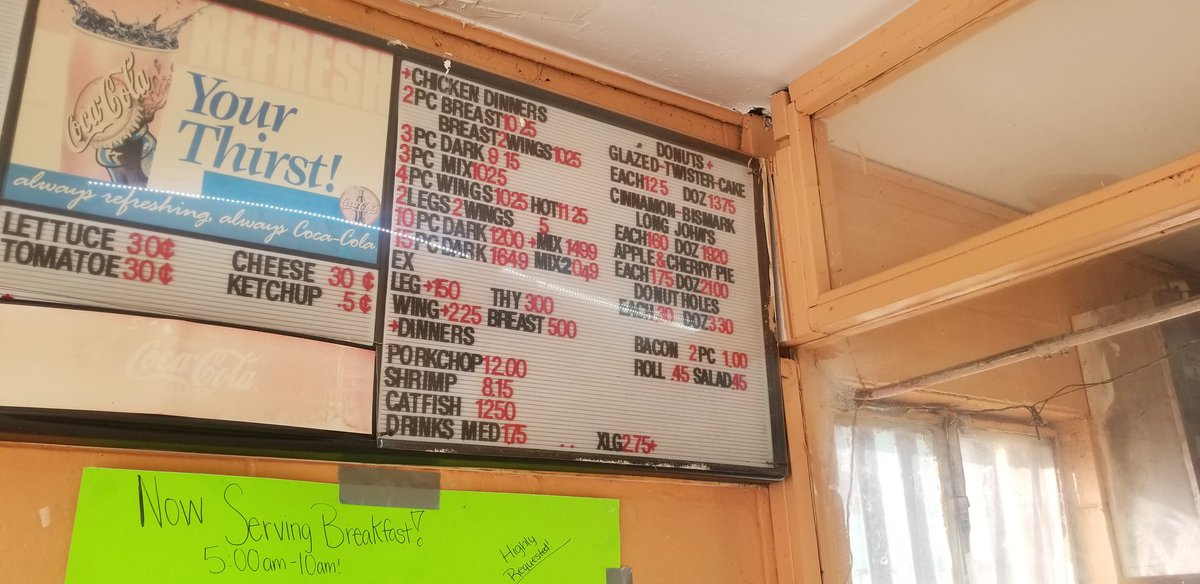 REFRESH
Your
Thirst!
Coca-Cola
always refreshing, always Coca-Cola
Coca-Cola
LETTUCE 30¢
TOMATOE 30¢
CHEESE 30 ¢
KETCHUP .5¢
Coca-Cola
+CHICKEN DINNERS
2PC BREAST10 25
BREAST2WINGS1025
3PC DARK 9 15
3PC MIX1025
4PC WINGS1025 HOT11 25
2LEGS 2WINGS
5
10PC DARK 1200 +MIX 1499
15PC DARK 1649 MIX2049
EX
LEG+150 THY 300
WING+225 BREAST 500
+DINNERS
PORKCHOP12.00
SHRIMP 8.15
CATFISH 1250
DRINKS MED175 XLG2.75+
DONUTS +
GLAZED-TWISTER-CAKE
EACH125 DOZ1375
CINNAMON-BISMARK
LONG JOHNS
EACH160 DOZ1920
APPLE&CHERRY PIE
EACH175DOZ2100
DONUT HOLES
EACH DOZ330
BACON 2PC 1.00
ROLL .45 SALAD45
Now Serving Breakfast!
5:00am-10am!
Highly
Requested!